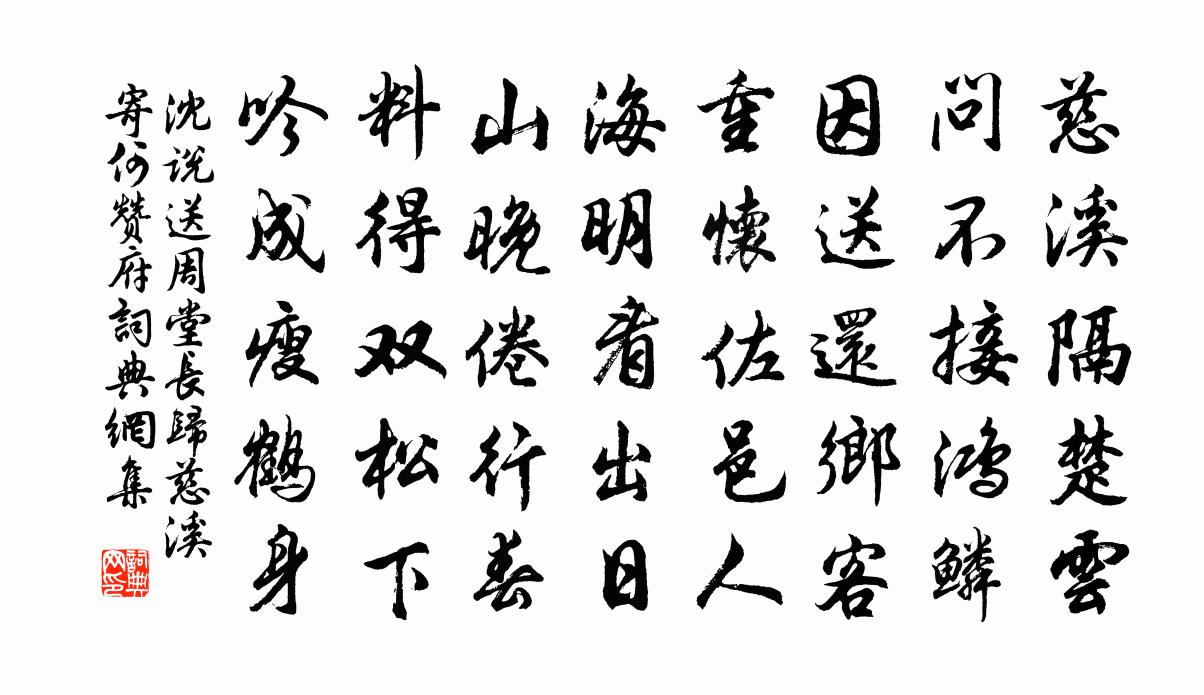 慈溪隔楚雲
問不接鴻鱗
因送還鄉客
重懷佐邑人
海明看出日
山晚倦行春
料得双松下
吟成瘦鶴身
沈説送周堂長歸慈溪
寄何贊府詞典網集
詞典网印